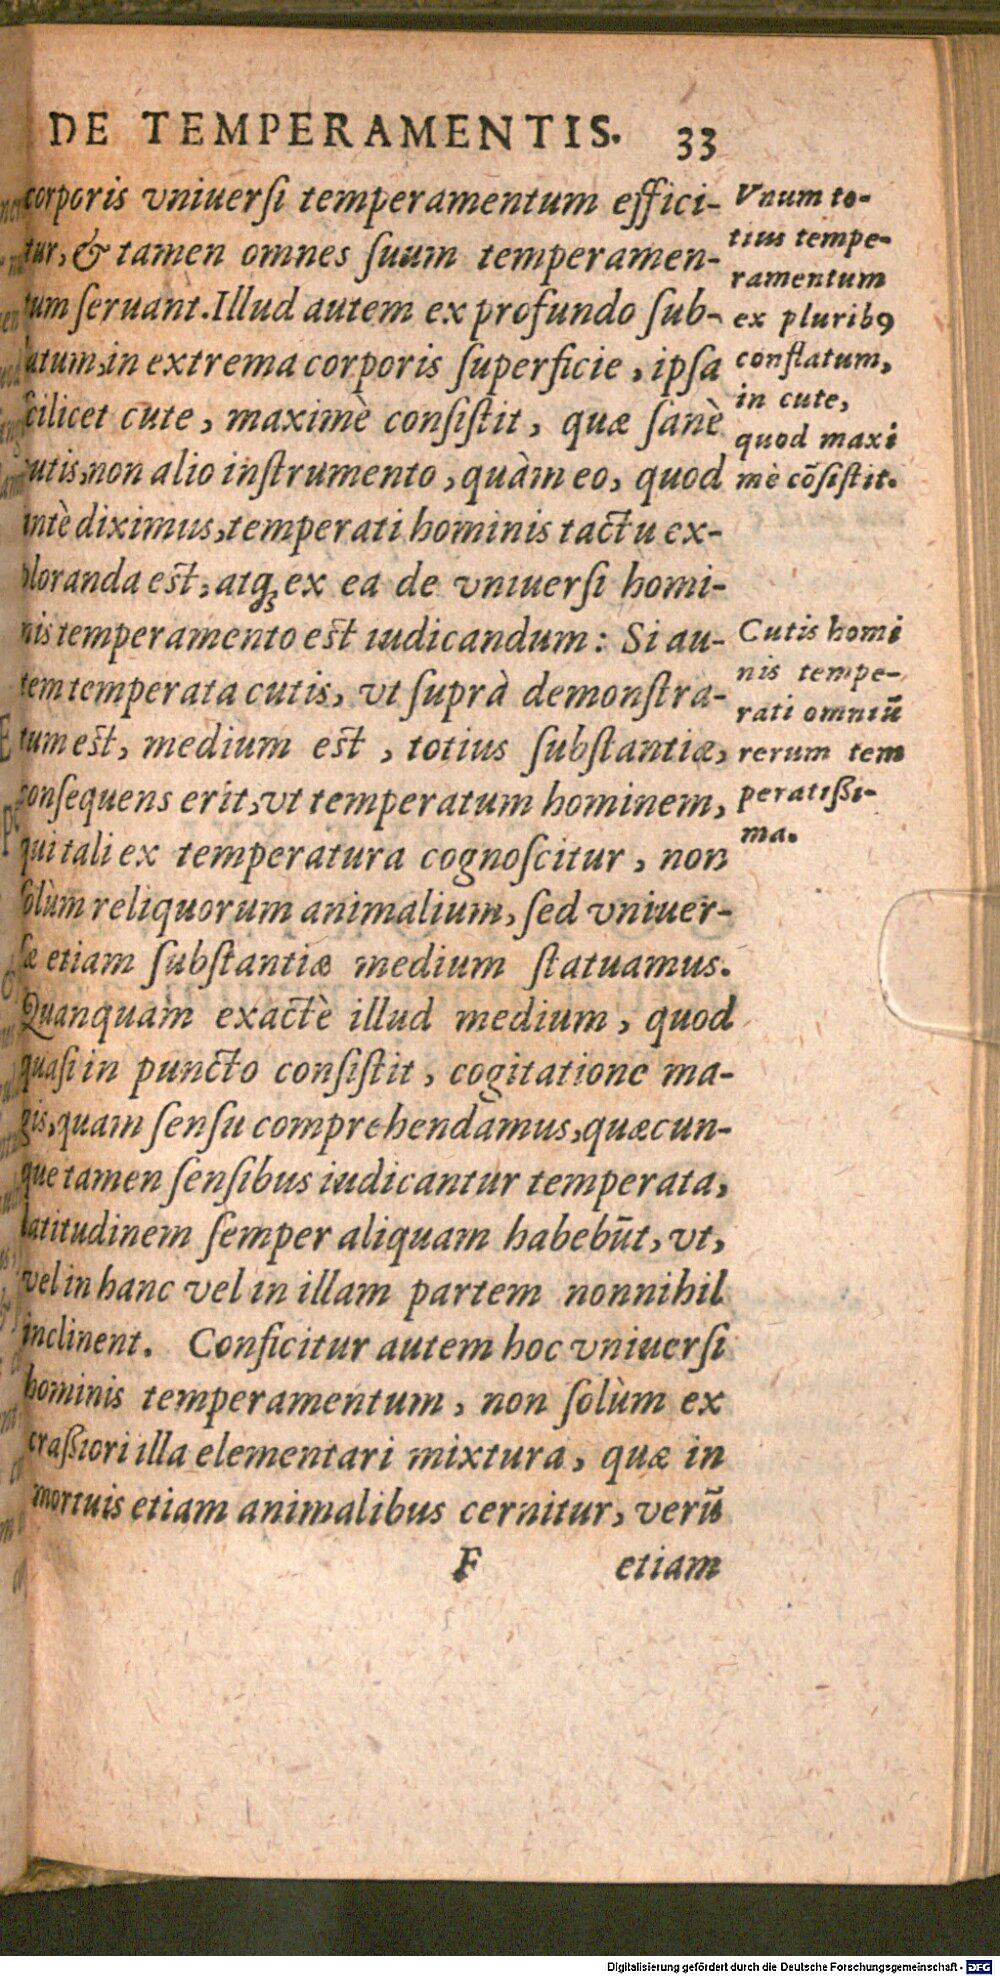 DE TEMPERAMENTIS. 33
corporis vniuersi temperamentum effici-
tur, & tamen omnes suum temperamen-
tum seruant. Illud autem ex profundo sub-
latum, in extrema corporis superficie, ipsa
scilicet cute, maximè consistit, quæ sanè
cutis, non alio instrumento, quàm eo, quod
antè diximus, temperati hominis tactu ex-
ploranda est, atq; ex ea de vniuersi homi-
nis temperamento est iudicandum: Si au-
tem temperata cutis, vt suprà demonstra-
tum est, medium est, totius substantiæ,
consequens erit, vt temperatum hominem,
qui tali ex temperatura cognoscitur, non
solùm reliquorum animalium, sed vniuer-
sæ etiam substantiæ medium statuamus.
Quanquam exactè illud medium, quod
quasi in puncto consistit, cogitatione ma-
gis, quam sensu comprehendamus, quæcun-
que tamen sensibus iudicantur temperata,
latitudinem semper aliquam habebūt, vt,
vel in hanc vel in illam partem nonnihil
inclinent. Conficitur autem hoc vniuersi
hominis temperamentum, non solùm ex
crassiori illa elementari mixtura, quæ in
mortuis etiam animalibus cernitur, verū
F etiam
Vnum to-
tius tempe-
ramentum
ex pluribꝰ
conflatum,
in cute,
quod maxi
mè cōsistit.
Cutis homi
nis tempe-
rati omniū
rerum tem
peratissi-
ma.
Digitalisierung gefördert durch die Deutsche Forschungsgemeinschaft - DFG